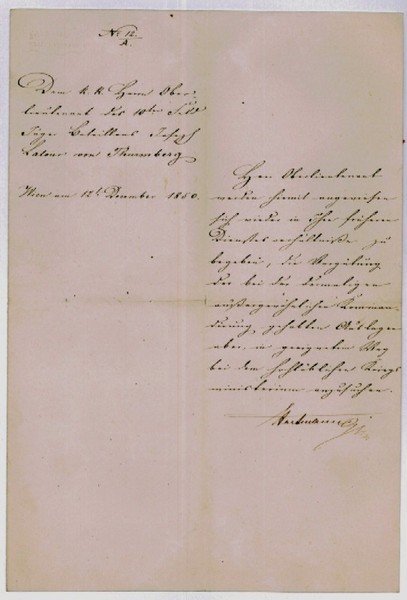 No 12
A.
Dem k. k. Herrn Ober-
lieutenant des 10ten Feld
Jäger Bataillons Joseph
Latour von Thurmberg
Wien am 12t December 1850.
Herr Oberlieutenant
werden hiemit angewiesen
sich wieder in Ihre früheren
Dienstesverhältniße zu
begeben, die Vergütung
der bei der dermaligen
außergewöhnlichen Komman-
dirung gehabten Auslagen
aber in geeignetem Weg
bei dem hochlöblichen Kriegs
ministerium anzusuchen.
Hartmann